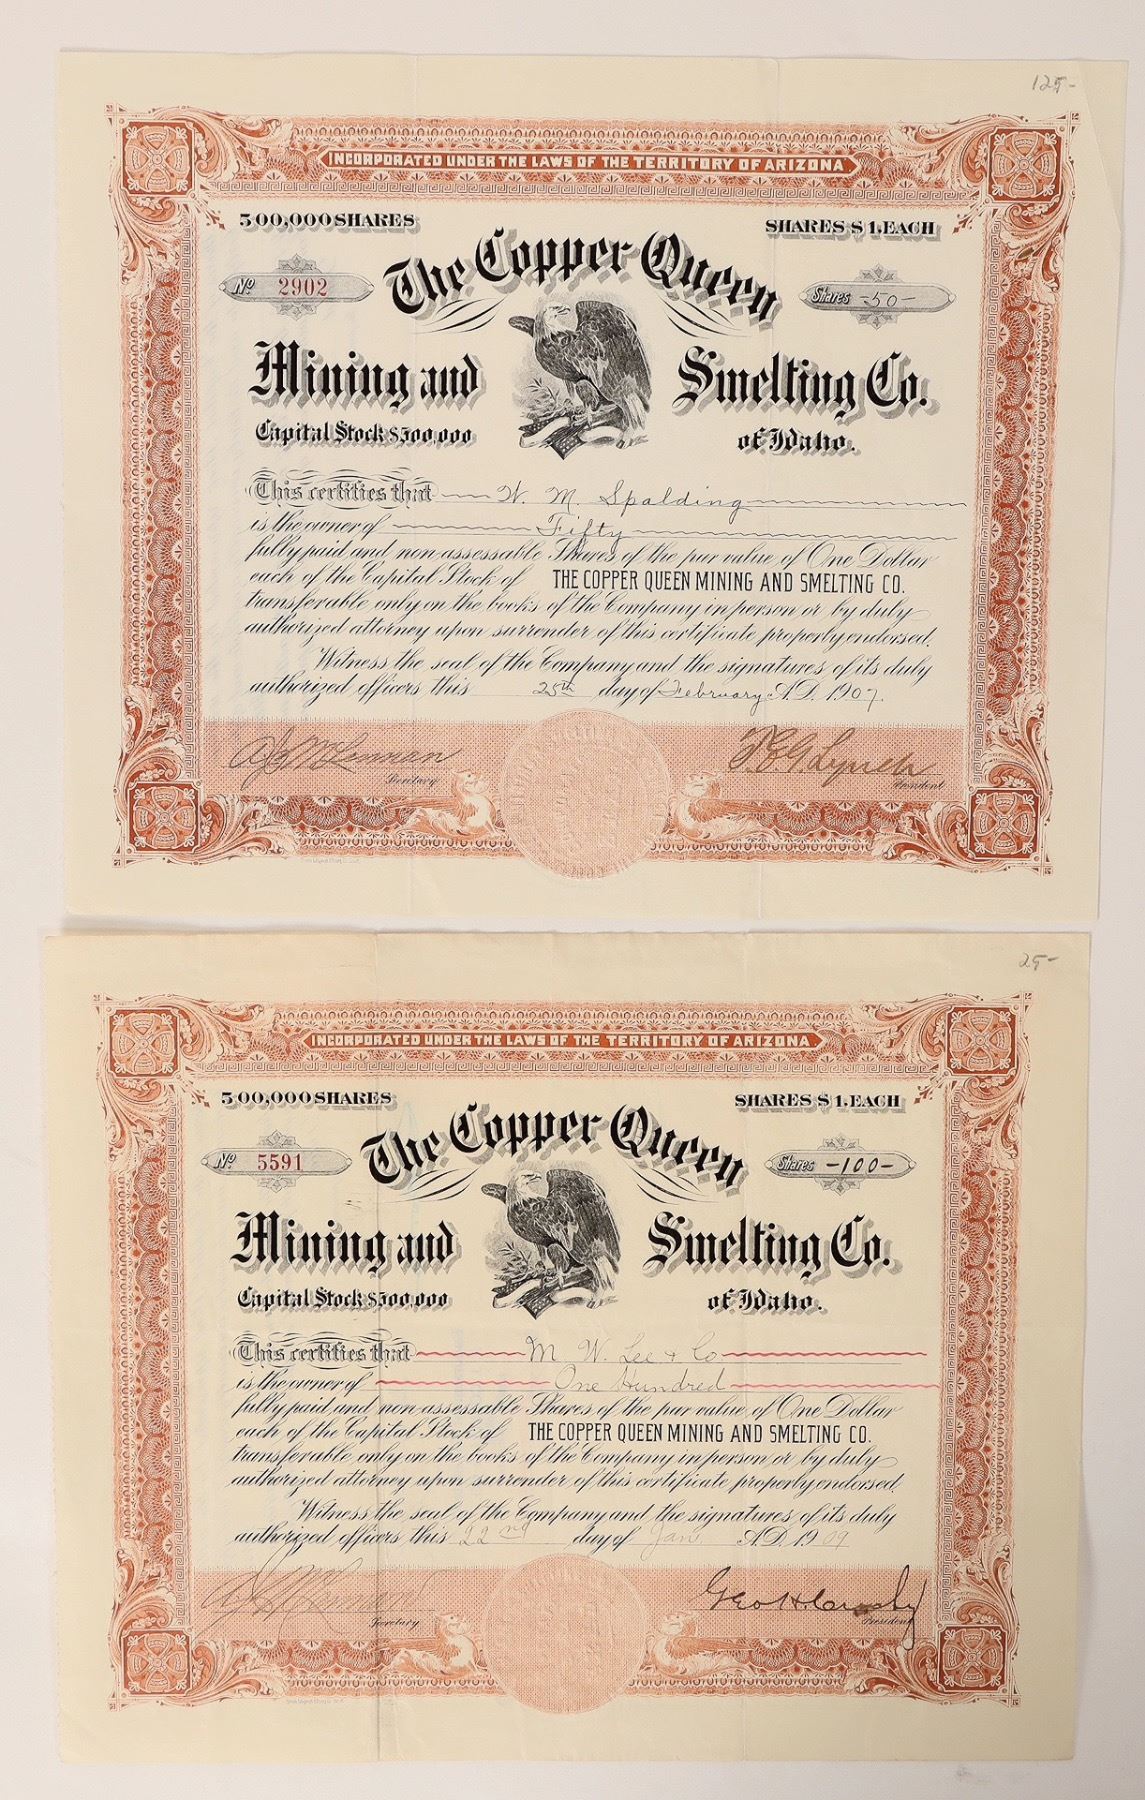 125-
INCORPORATED UNDER THE LAWS OF THE TERRITORY OF ARIZONA
500,000 SHARES SHARES $1. EACH
No 2902 The Copper Queen Shares -50-
Mining and Smelting Co.
Capital Stock $500,000 of Idaho.
This certifies that W. M. Spalding
is the owner of Fifty
fully paid and non-assessable Shares of the par value of One Dollar
each of the Capital Stock of THE COPPER QUEEN MINING AND SMELTING CO.
transferable only on the books of the Company in person or by duly
authorized attorney upon surrender of this certificate properly endorsed.
Witness the seal of the Company and the signatures of its duly
authorized officers this 25th day of February A.D. 1907
T. E. G. Lynch
Secretary President
25-
INCORPORATED UNDER THE LAWS OF THE TERRITORY OF ARIZONA
500,000 SHARES SHARES $1. EACH
No 5591 The Copper Queen Shares -100-
Mining and Smelting Co.
Capital Stock $500,000 of Idaho.
This certifies that M W. Lee & Co
is the owner of One Hundred
fully paid and non-assessable Shares of the par value of One Dollar
each of the Capital Stock of THE COPPER QUEEN MINING AND SMELTING CO.
transferable only on the books of the Company in person or by duly
authorized attorney upon surrender of this certificate properly endorsed.
Witness the seal of the Company and the signatures of its duly
authorized officers this 22nd day of Jan. A.D. 1909
Geo H.
Secretary President